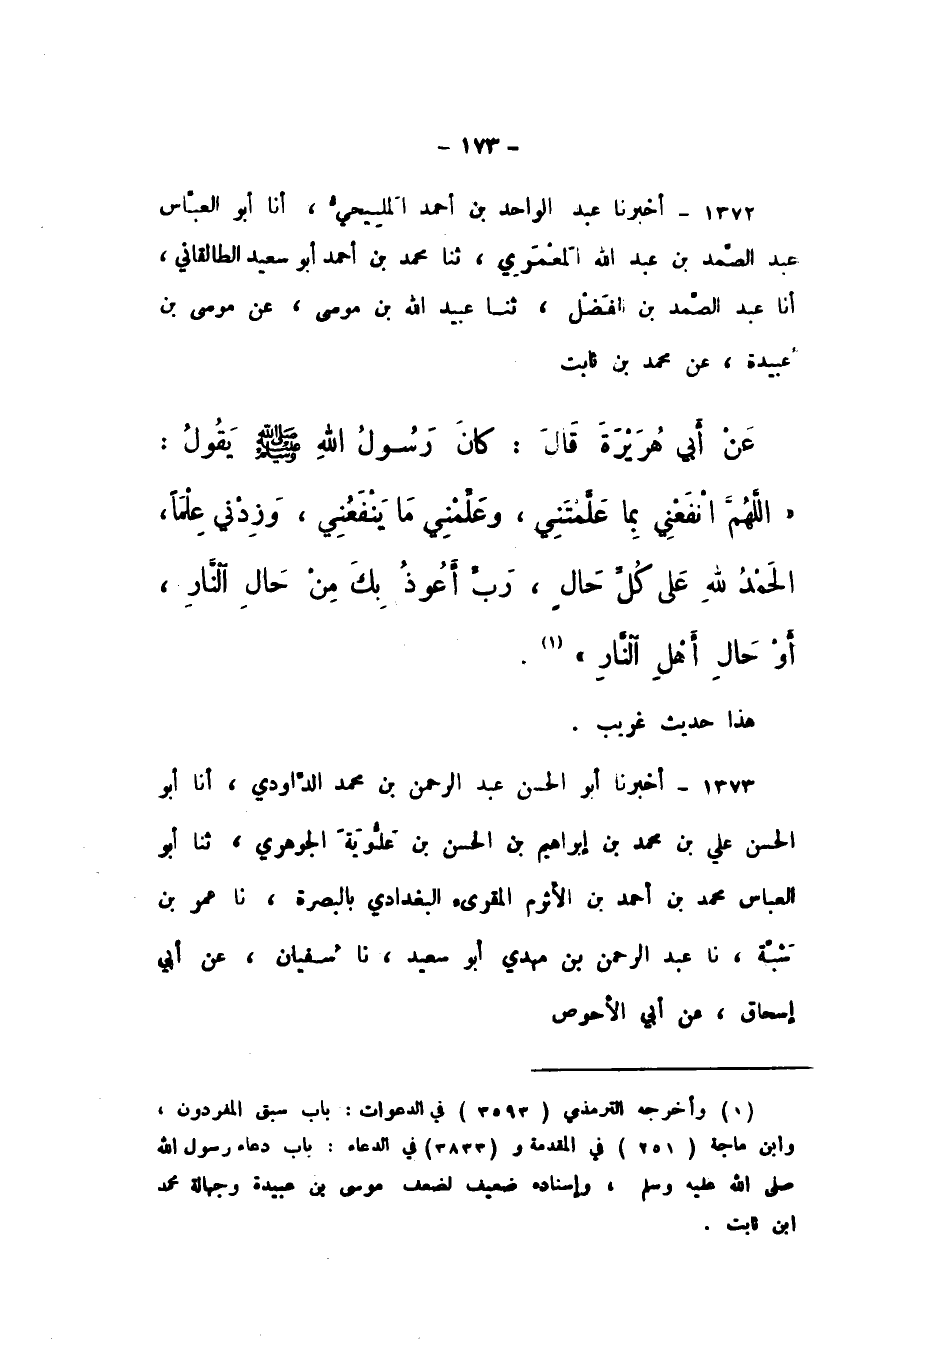 - ١٧٣ -
١٣٧٢ - أخبرنا عبد الواحد بن أحمد المليحيُّ ، أنا أبو العبّاس
عبد الصّمد بن عبد الله المعْمَري ، ثنا محمد بن أحمد أبو سعيد الطالقاني ،
أنا عبد الصّمد بن الفَضْل ، ثنا عبيد الله بن موسى ، عن موسى بن
عُبيدة ، عن محمد بن ثابت
عَنْ أَبِي هُرَيْرَةَ قَالَ : كانَ رَسُولُ اللهِ ﷺ يَقُولُ :
« اللَّهُمَّ انْفَعْنِي بِما عَلَّمْتَنِي ، وعَلِّمْنِي مَا يَنْفَعُنِي ، وَزِدْنِي عِلْمَاً ،
الحَمْدُ للهِ عَلى كُلِّ حَالٍ ، رَبِّ أَعُوذُ بِكَ مِنْ حَالِ ٱلنَّارِ ،
أَوْ حَالِ أَهْلِ ٱلنَّارِ » (١) .
هذا حديث غريب .
١٣٧٣ - أخبرنا أبو الحسن عبد الرحمن بن محمد الدّاودي ، أنا أبو
الحسن علي بن محمد بن إبراهيم بن الحسن بن عَلُّوَيَةَ الجوهري ، ثنا أبو
العباس محمد بن أحمد بن الأثرم المقرىء البغدادي بالبصرة ، نا عمر بن
شَبّة ، نا عبد الرحمن بن مهدي أبو سعيد ، نا سُفيان ، عن أبي
إسحاق ، عن أبي الأحوص
(١) وأخرجه الترمذي ( ٣٥٩٣ ) في الدعوات : باب سبق المفردون ،
وابن ماجة ( ٢٥١ ) في المقدمة و (٣٨٣٣) في الدعاء : باب دعاء رسول الله
صلى الله عليه وسلم ، وإسناده ضعيف لضعف موسى بن عبيدة وجهالة محمد
ابن ثابت .